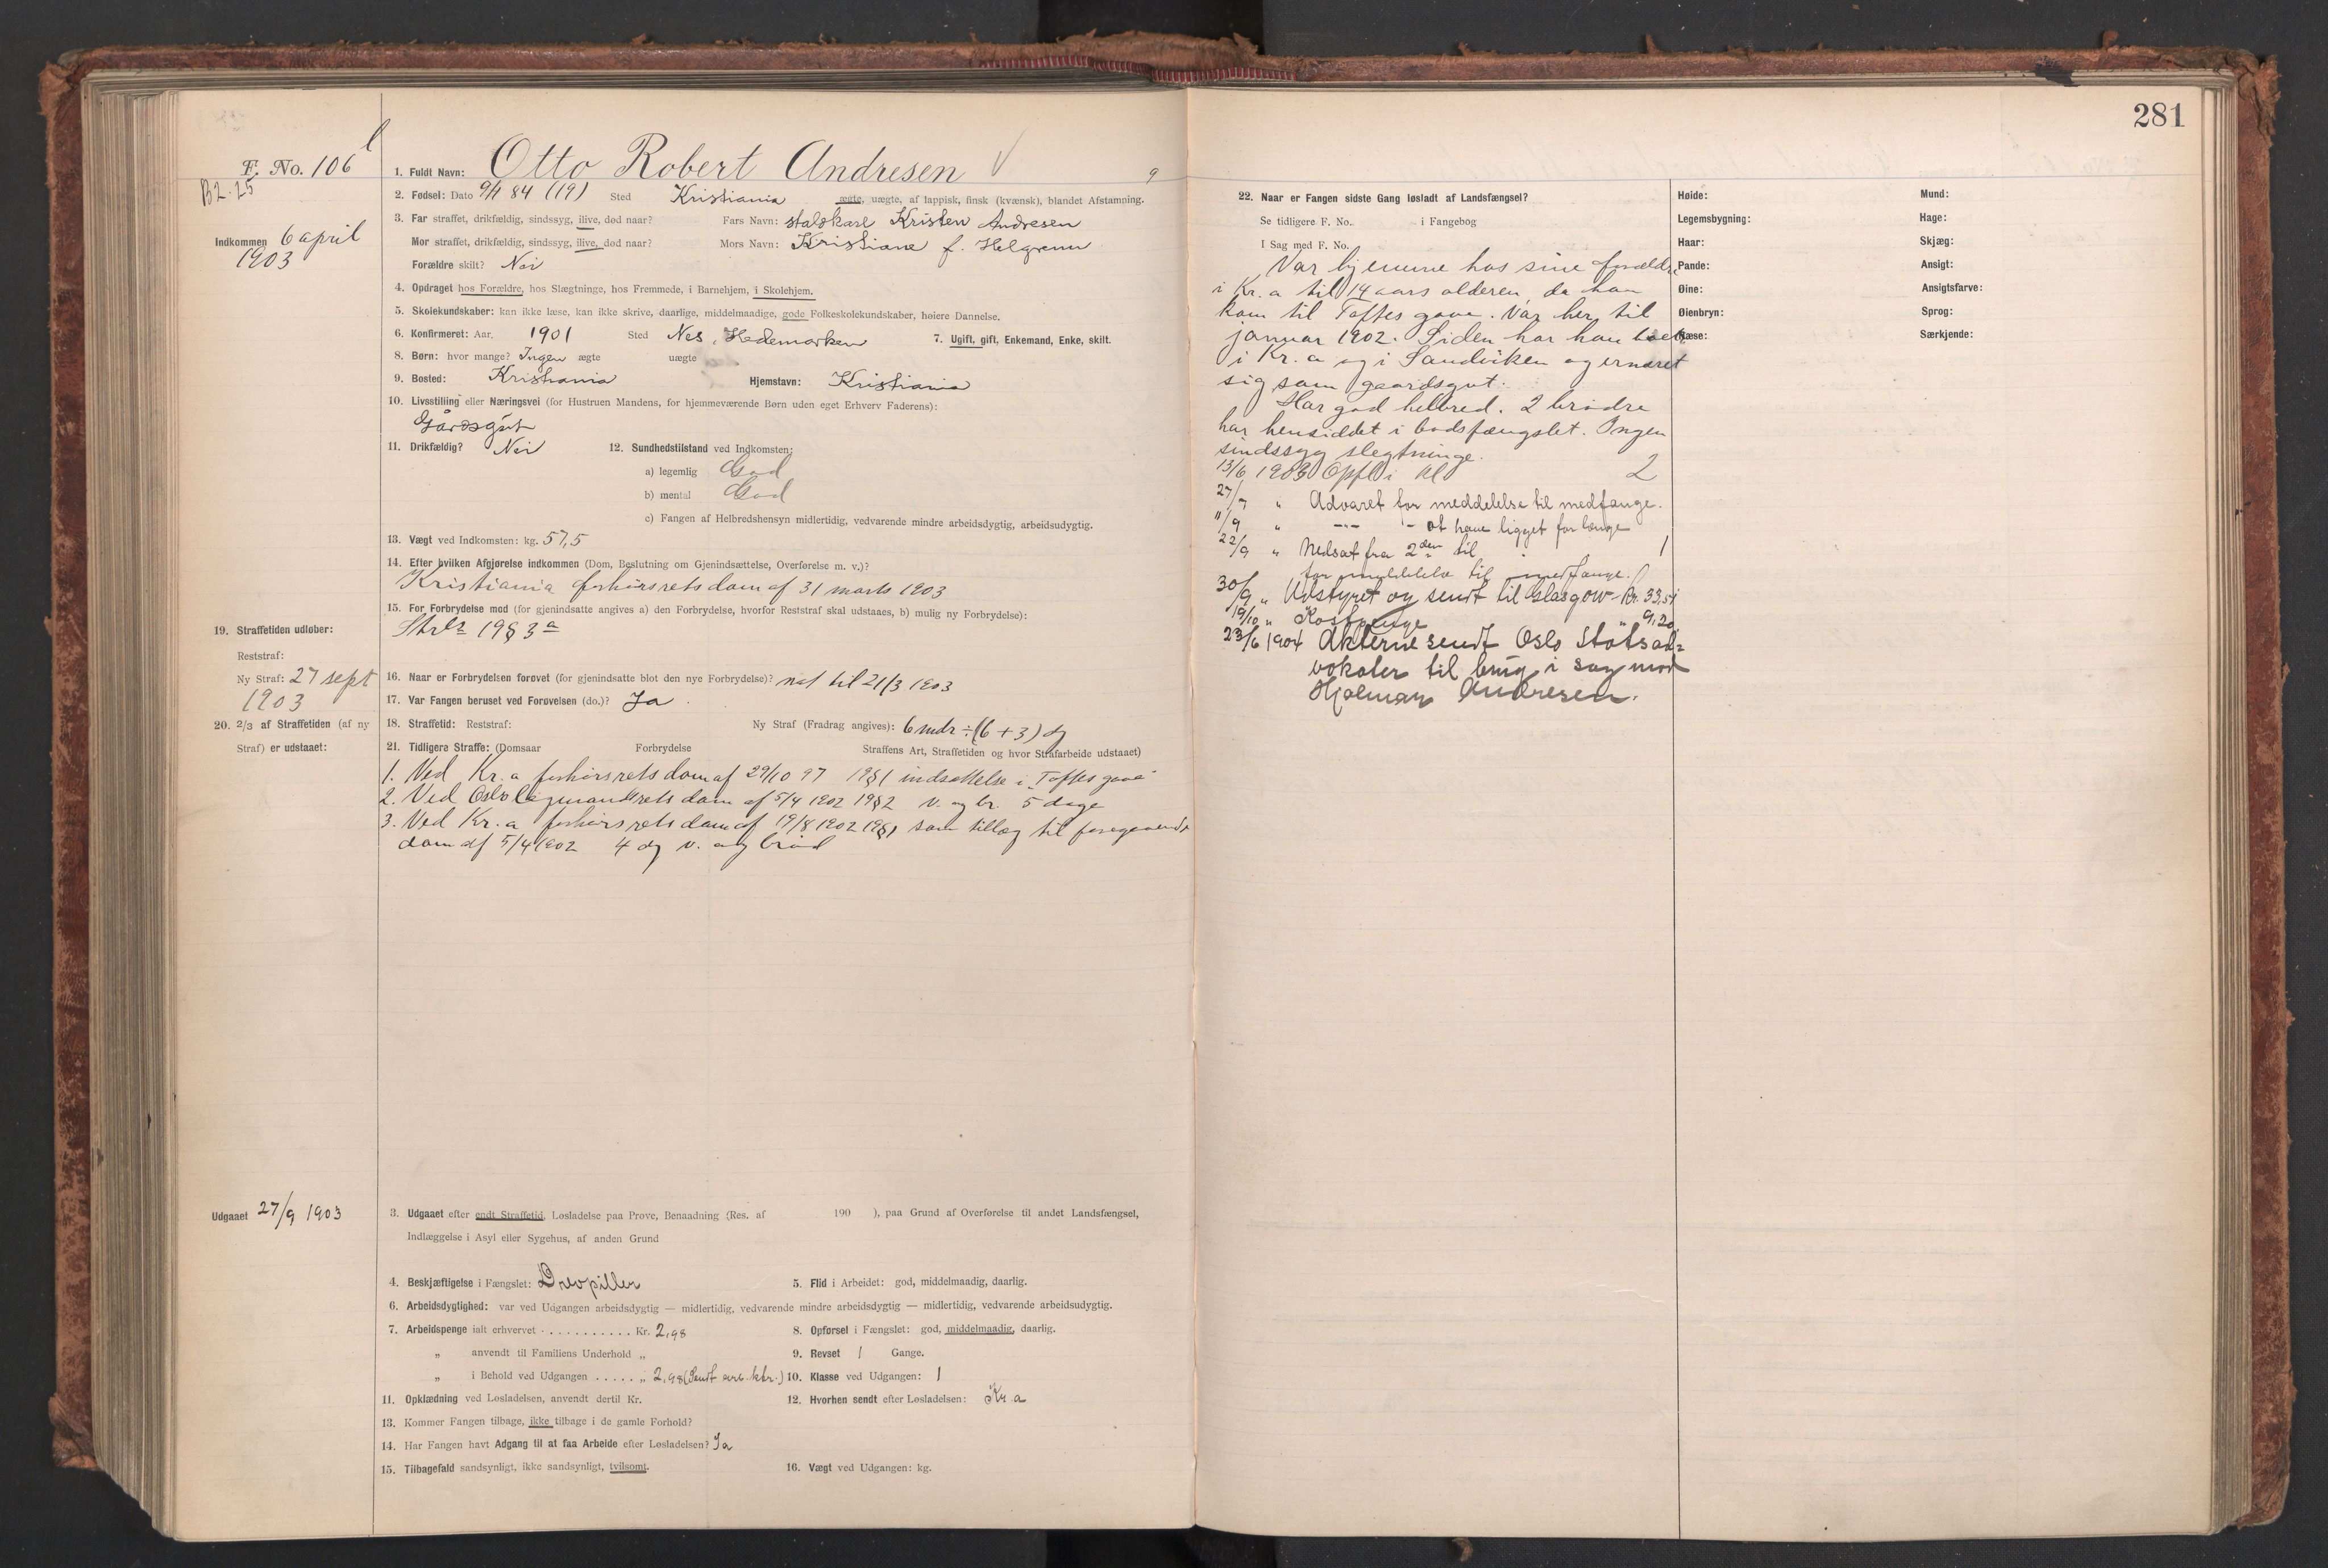 281
F. No. 106
B2.25
Indkommen 6 april
1903
1. Fuldt Navn: Otto Robert Andresen
9
2. Fødsel: Dato 9/1 84 (19) Sted Kristiania ægte, uægte, af lappisk, finsk (kvænsk), blandet Afstamning.
3. Far straffet, drikfældig, sindssyg, ilive, død naar? Fars Navn: staldkarl Kristen Andresen
Mor straffet, drikfældig, sindssyg, ilive, død naar? Mors Navn: Kristiane f. Helgren
Forældre skilt? Nei
4. Opdraget hos Forældre, hos Slægtninge, hos Fremmede, i Barnehjem, i Skolehjem.
5. Skolekundskaber: kan ikke læse, kan ikke skrive, daarlige, middelmaadige, gode Folkeskolekundskaber, høiere Dannelse.
6. Konfirmeret: Aar. 1901 Sted Nes, Hedemarken 7. Ugift, gift, Enkemand, Enke, skilt.
8. Børn: hvor mange? Ingen ægte uægte
9. Bosted: Kristiania Hjemstavn: Kristiania
10. Livsstilling eller Næringsvei (for Hustruen Mandens, for hjemmeværende Børn uden eget Erhverv Faderens):
Gårdsgut
11. Drikfældig? Nei 12. Sundhedstilstand ved Indkomsten:
a) legemlig God
b) mental God
c) Fangen af Helbredshensyn midlertidig, vedvarende mindre arbeidsdygtig, arbeidsudygtig.
13. Vægt ved Indkomsten: kg. 57,5
14. Efter hvilken Afgjørelse indkommen (Dom, Beslutning om Gjenindsættelse, Overførelse m. v.)?
Kristiania forhørsrets dom af 31 marts 1903
15. For Forbrydelse mod (for gjenindsatte angives a) den Forbrydelse, hvorfor Reststraf skal udstaaes, b) mulig ny Forbrydelse):
Strl 19 § 3 a
19. Straffetiden udløber:
Reststraf:
Ny Straf: 27 sept
1903
16. Naar er Forbrydelsen forøvet (for gjenindsatte blot den nye Forbrydelse)? nat til 21/3 1903
17. Var Fangen beruset ved Forøvelsen (do.)? Ja
20. 2/3 af Straffetiden (af ny
Straf) er udstaaet:
18. Straffetid: Reststraf: Ny Straf (Fradrag angives): 6 mdr ÷ (6 + 3) dg
21. Tidligere Straffe: (Domsaar Forbrydelse Straffens Art, Straffetiden og hvor Strafarbeide udstaaet)
1. Ved Kr.a forhørsrets dom af 29/10 97 19 § 1 indsættelse i "Toftes gave"
2. Ved Oslo lagmandsrets dom af 5/4 1902 19 § 2 v. og br. 5 dage
3. Ved Kr.a forhørsrets dom af 19/8 1902 19 § 1 som tillæg til foregaaende
dom af 5/4 1902 4 dg v. og brød
Udgaaet 27/9 1903
3. Udgaaet efter endt Straffetid, Løsladelse paa Prøve, Benaadning (Res. af 190 ), paa Grund af Overførelse til andet Landsfængsel,
Indlæggelse i Asyl eller Sygehus, af anden Grund
4. Beskjæftigelse i Fængslet: Drevpiller 5. Flid i Arbeidet: god, middelmaadig, daarlig.
6. Arbeidsdygtighed: var ved Udgangen arbeidsdygtig — midlertidig, vedvarende mindre arbeidsdygtig — midlertidig, vedvarende arbeidsudygtig.
7. Arbeidspenge ialt erhvervet . . . . . . . . . . . Kr. 2,98 8. Opførsel i Fængslet: god, middelmaadig, daarlig.
„ anvendt til Familiens Underhold „ 9. Revset 1 Gange.
„ i Behold ved Udgangen . . . . . „ 2,98 (Sendt arb.ktr.) 10. Klasse ved Udgangen: 1
11. Opklædning ved Løsladelsen, anvendt dertil Kr. 12. Hvorhen sendt efter Løsladelsen: Kr.a
13. Kommer Fangen tilbage, ikke tilbage i de gamle Forhold?
14. Har Fangen havt Adgang til at faa Arbeide efter Løsladelsen? Ja
15. Tilbagefald sandsynligt, ikke sandsynligt, tvilsomt. 16. Vægt ved Udgangen: kg.
22. Naar er Fangen sidste Gang løsladt af Landsfængsel?
Se tidligere F. No. i Fangebog
I Sag med F. No.
Var hjemme hos sine forældre
i Kr.a til 14 aars alderen, da han
kom til Toftes gave. Var her til
januar 1902. Siden har han boet
i Kr.a og i Sandviken og ernæret
sig som gaardsgut.
Har god helbred. 2 brødre
har hensiddet i bodsfængslet. Ingen
sindssyg slegtninge.
13/6 1903 Opfl i Kl 2
27/7 " Advaret for meddelelse til medfange.
11/9 " —"— - at have ligget for længe
22/9 " Nedsat fra 2den til 1
for meddelelse til medfange.
30/9 " Udstyret og sendt til Glasgow - Kr. 33,51
19/10 " Kostpenge " 9,20
23/6 1904 Akterne sendt Oslo Statsad=
vokater til brug i sag mod
Hjalmar Andresen.
Høide:
Legemsbygning:
Haar:
Pande:
Øine:
Øienbryn:
Næse:
Mund:
Hage:
Skjæg:
Ansigt:
Ansigtsfarve:
Sprog:
Særkjende: